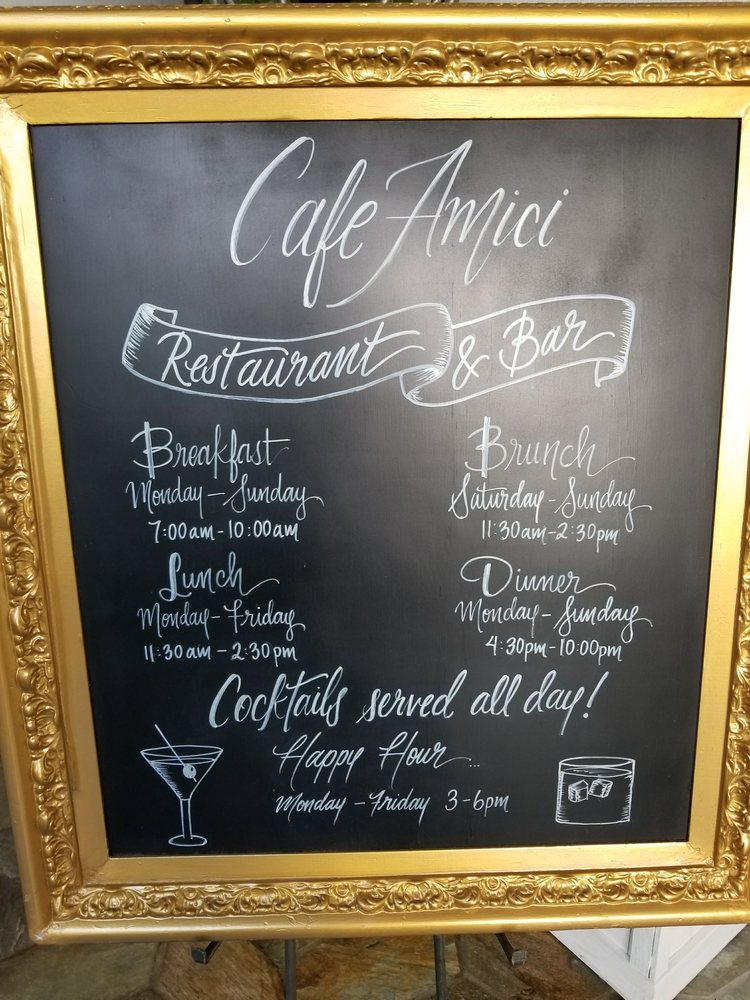 Cafe Amici
Restaurant & Bar
Breakfast
Monday - Sunday
7:00am - 10:00am
Brunch
Saturday - Sunday
11:30am - 2:30pm
Lunch
Monday - Friday
11:30am - 2:30pm
Dinner
Monday - Sunday
4:30pm - 10:00pm
Cocktails served all day!
Happy Hour...
Monday - Friday 3-6pm